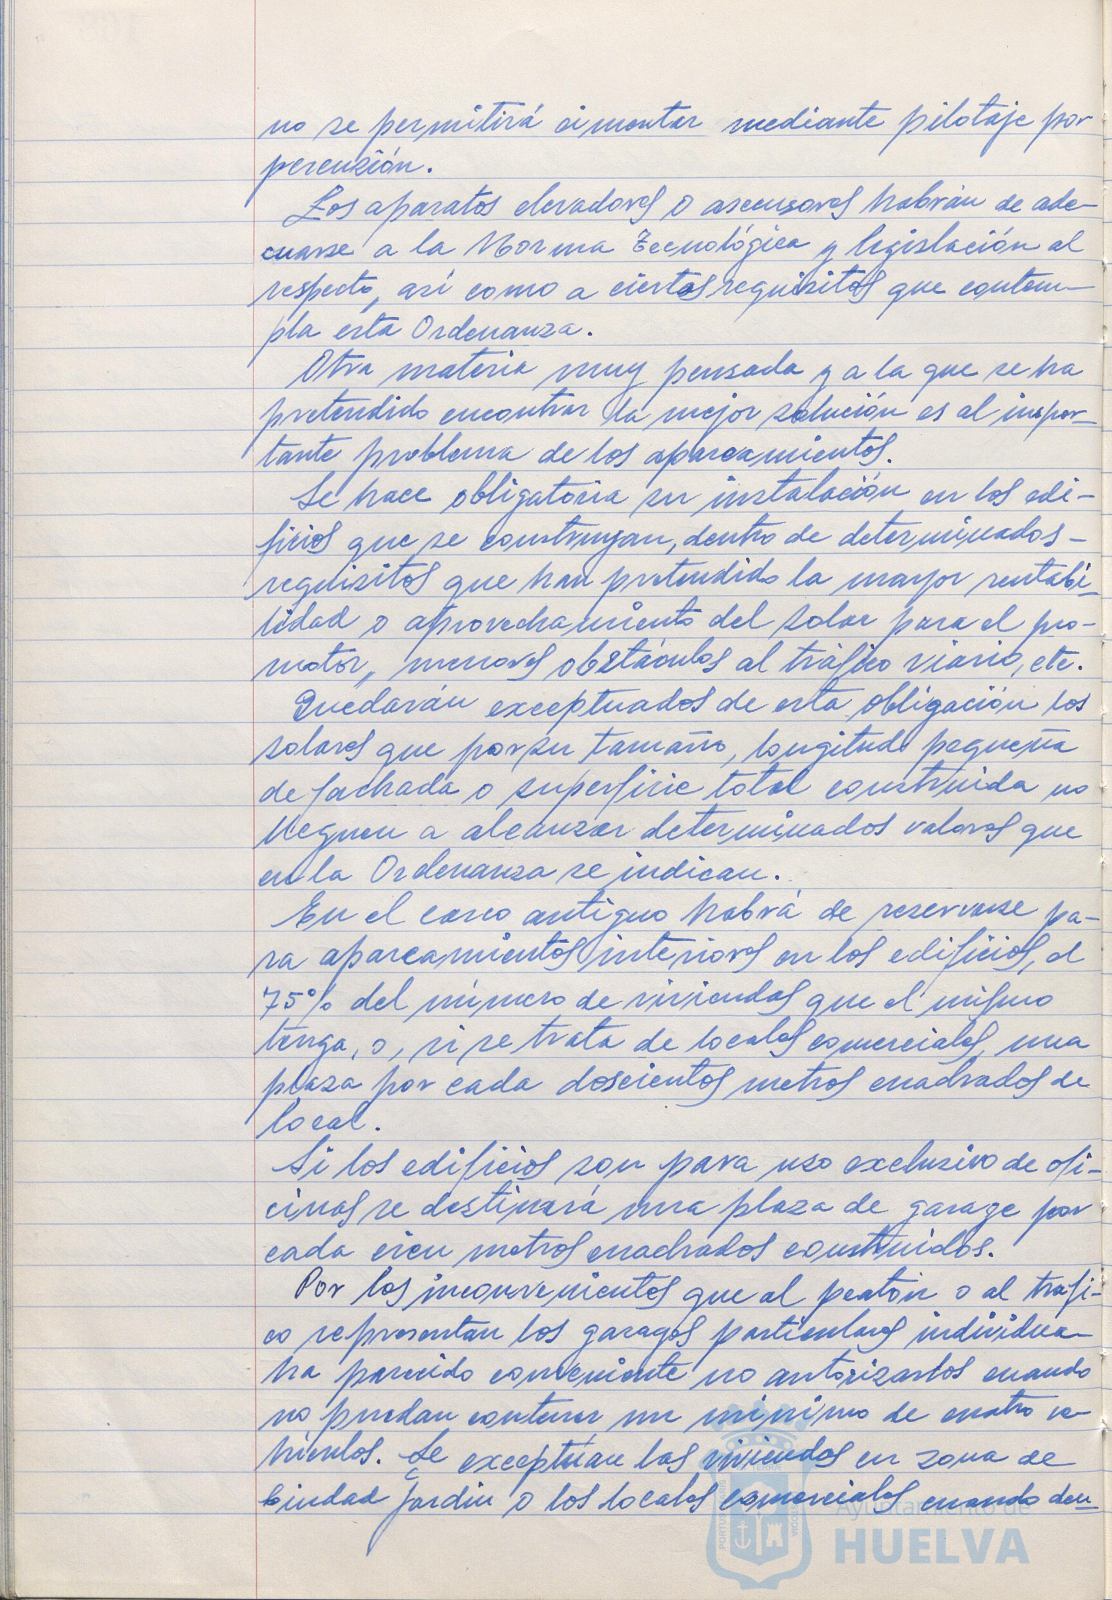 no se permitirá cimentar mediante pilotaje por
percuzión.
Los aparatos elevadores o ascensores habrán de ade-
cuarse a la Norma Tecnológica y legislación al
respecto, así como a ciertos requisitos que contem-
pla esta Ordenanza.
Otra materia muy pensada y a la que se ha
pretendido encontrar la mejor solución es al impor-
tante problema de los aparcamientos.
Se hace obligatoria su instalación en los edi-
ficios que se construyan, dentro de determinados-
requisitos que han pretendido la mayor rentabi-
lidad o aprovechamiento del solar para el pro-
motor, menores obstáculos al tráfico viario, etc.
Quedarán exceptuados de esta obligación los
solares que por su tamaño, longitud pequeña
de fachada o superficie total construida no
lleguen a alcanzar determinados valores que
en la Ordenanza se indican.
En el casco antiguo habrá de reservarse pa-
ra aparcamientos interiores en los edificios, el
75% del número de viviendas que el mismo
tenga, o, si se trata de locales comerciales, una
plaza por cada doscientos metros cuadrados de
local.
Si los edificios son para uso exclusivo de ofi-
cinas se destinará una plaza de garage por
cada cien metros cuadrados construidos.
Por los inconvenientes que al peatón o al tráfi-
co representan los garages particulares individua-
ha parecido conveniente no autorizarlos cuando
no puedan contener un mínimo de cuatro ve-
hículos. Se exceptúan las viviendas en zona de
Ciudad Jardín o los locales comerciales cuando den-
Ayuntamiento de
HUELVA